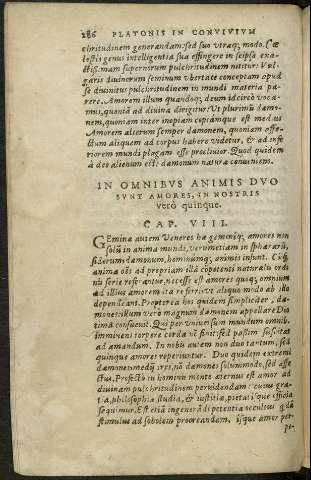 286 PLATONIS IN CONVIVIUM
chritudinem generandam: sed suo utraq; modo. Cœ
lestis genus intelligentia sua effingere in seipsa exa-
ctiss. nam supernorum pulchritudinem nititur: Vul
garis diuinorum seminum ubertate conceptam apud
se diuinitus pulchritudinem in mundi materia pa
rere. Amorem illum quandoq; deum idcirco uoca-
mus, quoniã ad diuina dirigitur. Vt plurimũ dæmo-
nem, quoniam inter inopiam copiámque est medius
Amorem alterum semper dæmonem, quoniam affe-
ctum aliquem ad corpus habere uidetur, & ad infe
riorem mundi plagam esse procliuior. Quod quidem
à deo alienum est: dæmonum naturæ conueniens.
IN OMNIBVS ANIMIS DVO
SVNT AMORES, IN NOSTRIS
verò quinque.
CAP. VIII.
GEminæ autem Veneres hæ geminiq; amores non
solũ in anima mundi, uerumetiam in sphærarũ,
siderum, dæmonum, hominumq; animis insunt. Cùq;
animæ oẽs ad propriam illã copotenti naturalis ordi
nis serie referantur, necesse est amores quoq; omnium
ad illius amorem ita referri, ut aliquo modo ab illo
dependeant. Propterea hos quidem simpliciter, dæ-
mones: illum verò magnum dæmonem appellare Dio
tima consueuit. Qui per uniuersum mundum omnib.
imminens torpere corda nõ sinit: sed passim suscitat
ad amandum. In nobis autem non duo tantum, sed
quinque amores reperiuntur. Duo quidem extremi
dæmones: medij tres, nõ dæmones solummodo, sed affe
ctus. Profectò in hominis mente æternus est amor ad
diuinam pulchritudinem peruidendam: cuius gra-
tia, philosophiæ studia, & iustitiæ, pietatisque officia
sequimur. Est etiã in generãdi potentia occultus quidã
stimulus ad sobolem procreandam, isque amor per-
pe-